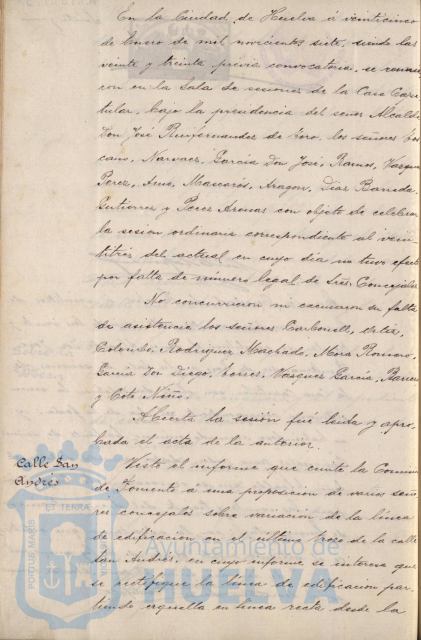 En la Ciudad de Huelva á veinticinco
de Enero de mil novecientos siete, siendo las
veinte y treinta, previa convocatoria, se reunie-
ron en la Sala de sesiones de la Casa Capi-
tular, bajo la presidencia del señor Alcalde
Don José de Toro, los señores
Narvaez, García Don José, Ramos, Vazquez
Perez, Mascarós, Aragon, Diaz Barreda,
Gutierrez y Perez Arenas con objeto de celebrar
la sesión ordinaria correspondiente al vein-
titres del actual en cuyo dia no tuvo efecto
por falta de número legal de Sres. Concejales.
No concurrieron ni excusaron su falta
de asistencia los señores Carbonell,
Colombo, Rodriguez Machado, Mora Romero,
García Don Diego, Torres, Vazquez García,
y Coto Niño.
Abierta la sesión fué leida y apro-
bada el acta de la anterior.
Calle San
Andrés
Visto el informe que emite la Comisión
de Fomento á una proposición de varios seño-
res concejales sobre variación de la linea
de edificación en el último trozo de la calle
San Andrés, en cuyo informe se interesa que
se rectifique la linea de edificación par-
tiendo aquella en linea recta desde la
PORTUS MARIS
ET TERRAE
Ayuntamiento de
HUELVA